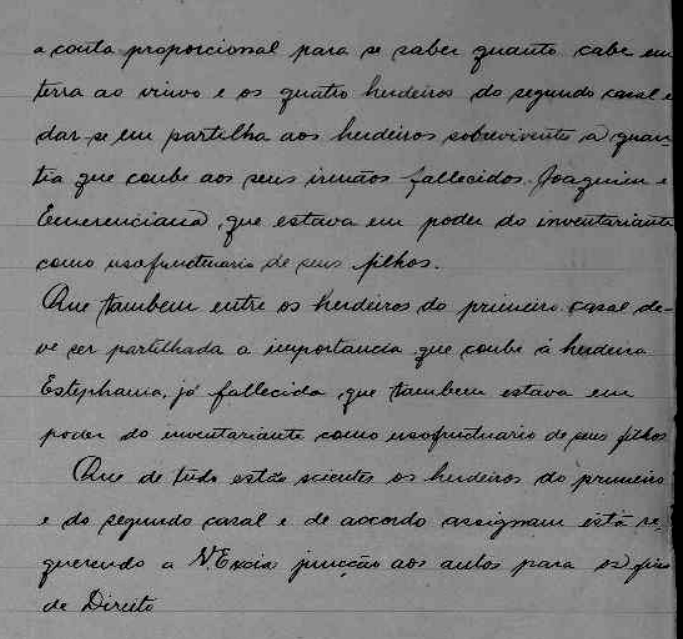 a conta proporcional para se saber quanto cabe em
terra ao viuvo e os quatro herdeiros do segundo casal e
dar-se em partilha aos herdeiros sobreviventes a quan-
tia que coube aos seus irmãos fallecidos. Joaquim e
Emerenciana, que estava em poder do inventariante
como usofructuario de seus filhos.
Que tambem entre os herdeiros do primeiro casal de-
ve ser partilhada a importancia que coube á herdeira
Estephania, já fallecida, que tambem estava em
poder do inventariante como usofructuario de seus filhos
Que de tudo estão scientes os herdeiros do primeiro
e do segundo casal e de accordo assignam esta re-
querendo a V. Excia juncção aos autos para os fins
de Direito